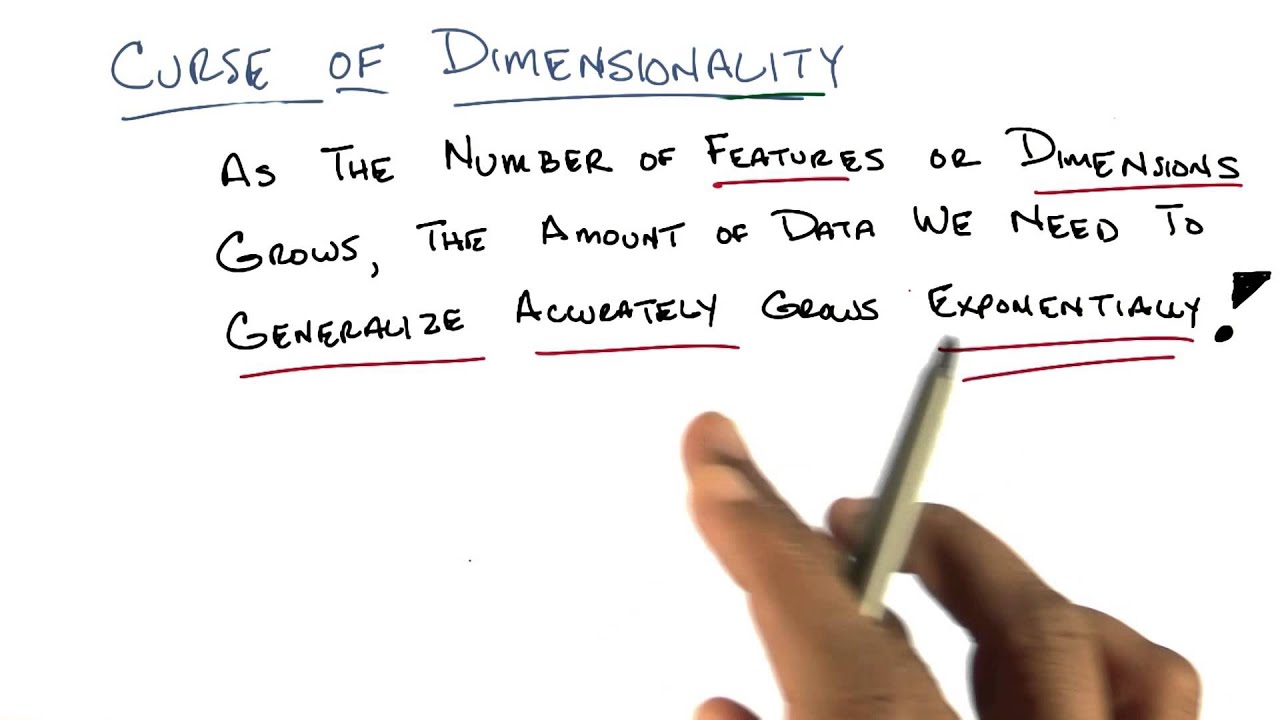 CURSE OF DIMENSIONALITY
AS THE NUMBER OF FEATURES OR DIMENSIONS
GROWS, THE AMOUNT OF DATA WE NEED TO
GENERALIZE ACCURATELY GROWS EXPONENTIALLY!